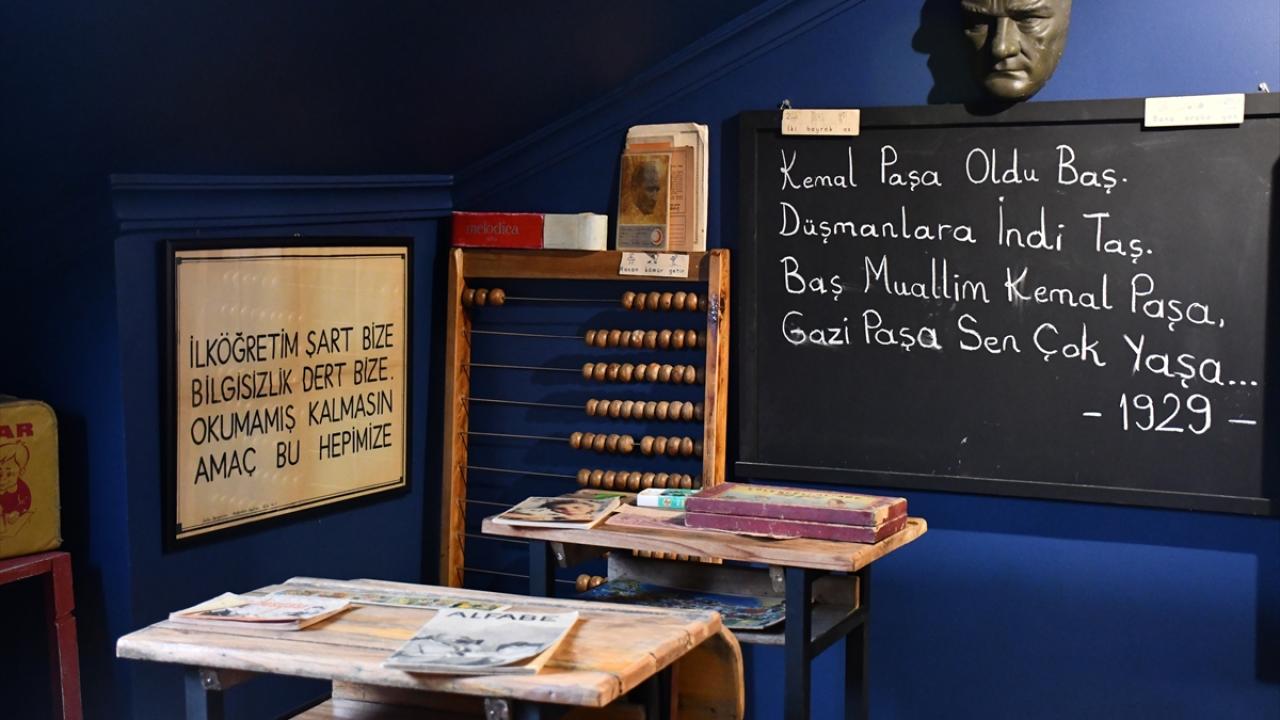 İki bayrak as
Kemal Paşa Oldu Baş.
Düşmanlara İndi Taş.
Baş Muallim Kemal Paşa,
Gazi Paşa Sen Çok Yaşa...
- 1929 -
melodica
İLKÖĞRETİM ŞART BİZE
BİLGİSİZLİK DERT BİZE.
OKUMAMIŞ KALMASIN
AMAÇ BU HEPİMİZE
AR
ALFABE